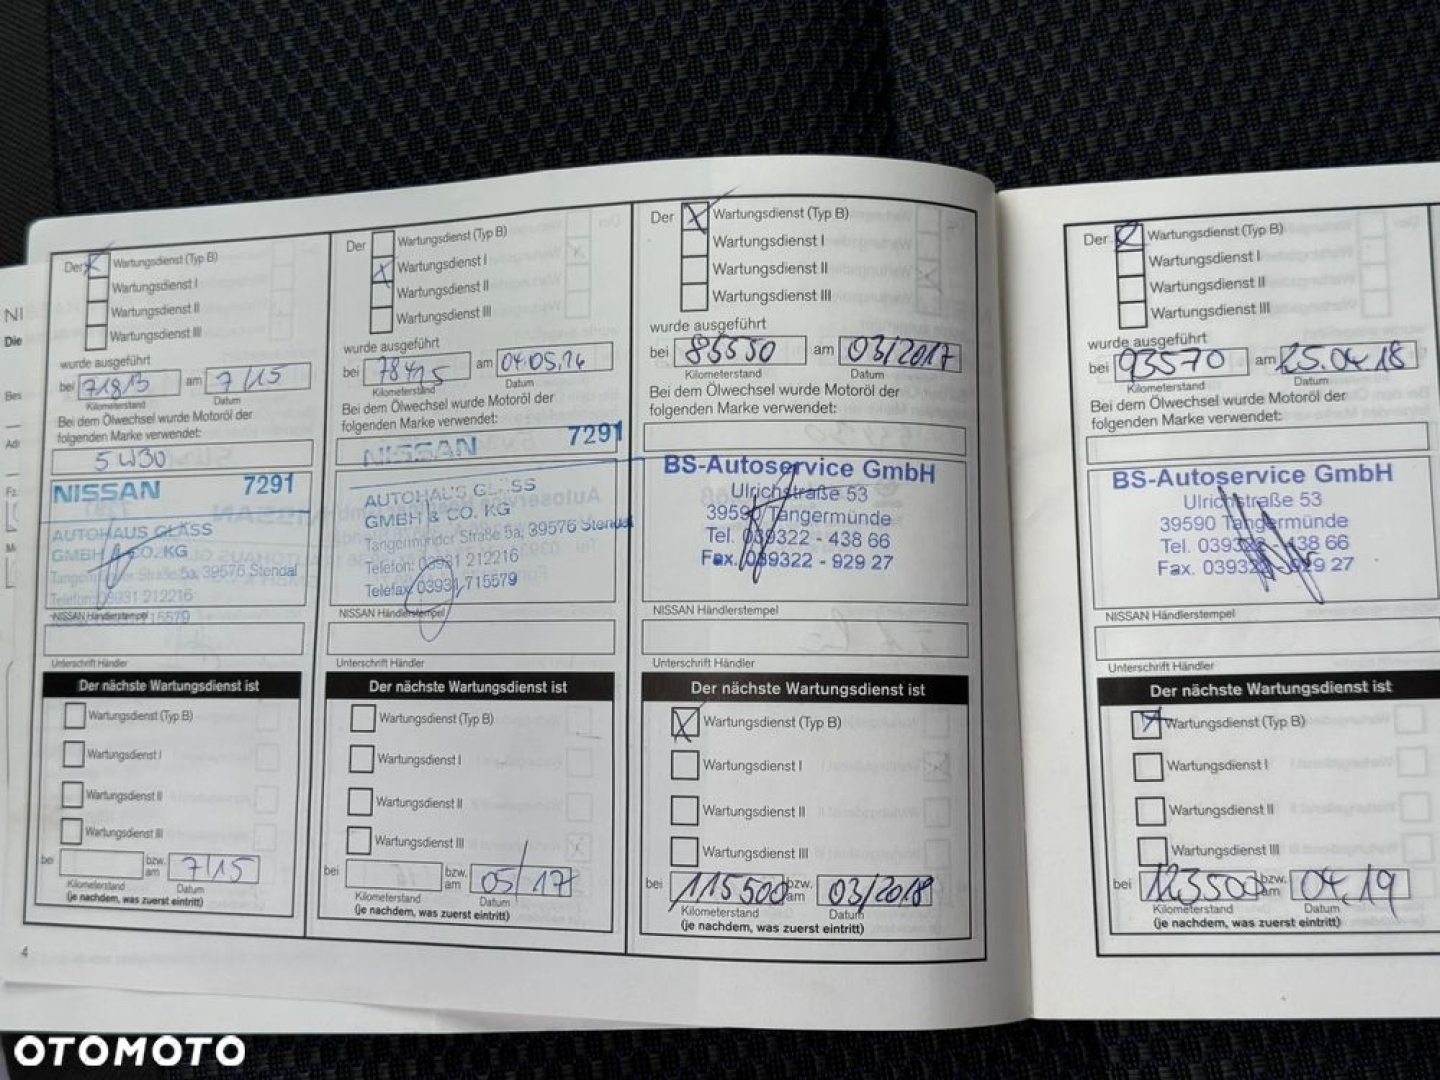 NI
Die
Bei
Der
Wartungsdienst (Typ B)
Wartungsdienst I
Wartungsdienst II
Wartungsdienst III
wurde ausgeführt
bei 71813 am 7/15
Kilometerstand Datum
Bei dem Ölwechsel wurde Motoröl der
folgenden Marke verwendet:
5W30
NISSAN 7291
AUTOHAUS GLÄSS
GMBH & CO. KG
Tangermünder Straße 5a, 39576 Stendal
Telefon: 03931 212216
NISSAN Händlerstempel
Unterschrift Händler
Der nächste Wartungsdienst ist
Wartungsdienst (Typ B)
Wartungsdienst I
Wartungsdienst II
Wartungsdienst III
bei bzw. am 7/15
Kilometerstand Datum
(je nachdem, was zuerst eintritt)
4
Der
Wartungsdienst (Typ B)
Wartungsdienst I
Wartungsdienst II
Wartungsdienst III
wurde ausgeführt
bei am
Kilometerstand Datum
Bei dem Ölwechsel wurde Motoröl der
folgenden Marke verwendet:
NISSAN 7291
AUTOHAUS GLÄSS
GMBH & CO. KG
Tangermünder Straße 5a, 39576 Stendal
Telefon: 03931 212216
Telefax: 03931 715579
NISSAN Händlerstempel
Unterschrift Händler
Der nächste Wartungsdienst ist
Wartungsdienst (Typ B)
Wartungsdienst I
Wartungsdienst II
Wartungsdienst III
bei bzw. am 05/17
Kilometerstand Datum
(je nachdem, was zuerst eintritt)
Der
Wartungsdienst (Typ B)
Wartungsdienst I
Wartungsdienst II
Wartungsdienst III
wurde ausgeführt
bei 85550 am 03/2017
Kilometerstand Datum
Bei dem Ölwechsel wurde Motoröl der
folgenden Marke verwendet:
BS-Autoservice GmbH
Ulrichstraße 53
39590 Tangermünde
Tel. 039322 - 438 66
Fax. 039322 - 929 27
NISSAN Händlerstempel
Unterschrift Händler
Der nächste Wartungsdienst ist
Wartungsdienst (Typ B)
Wartungsdienst I
Wartungsdienst II
Wartungsdienst III
bei 115500 bzw. am 03/2018
Kilometerstand Datum
(je nachdem, was zuerst eintritt)
Der
Wartungsdienst (Typ B)
Wartungsdienst I
Wartungsdienst II
Wartungsdienst III
wurde ausgeführt
bei 93570 am 25.04.18
Kilometerstand Datum
Bei dem Ölwechsel wurde Motoröl der
folgenden Marke verwendet:
BS-Autoservice GmbH
Ulrichstraße 53
39590 Tangermünde
Tel. 039322 - 438 66
Fax. 039322 - 929 27
NISSAN Händlerstempel
Unterschrift Händler
Der nächste Wartungsdienst ist
Wartungsdienst (Typ B)
Wartungsdienst I
Wartungsdienst II
Wartungsdienst III
bei 123500 bzw. am 04.19
Kilometerstand Datum
(je nachdem, was zuerst eintritt)
OTOMOTO